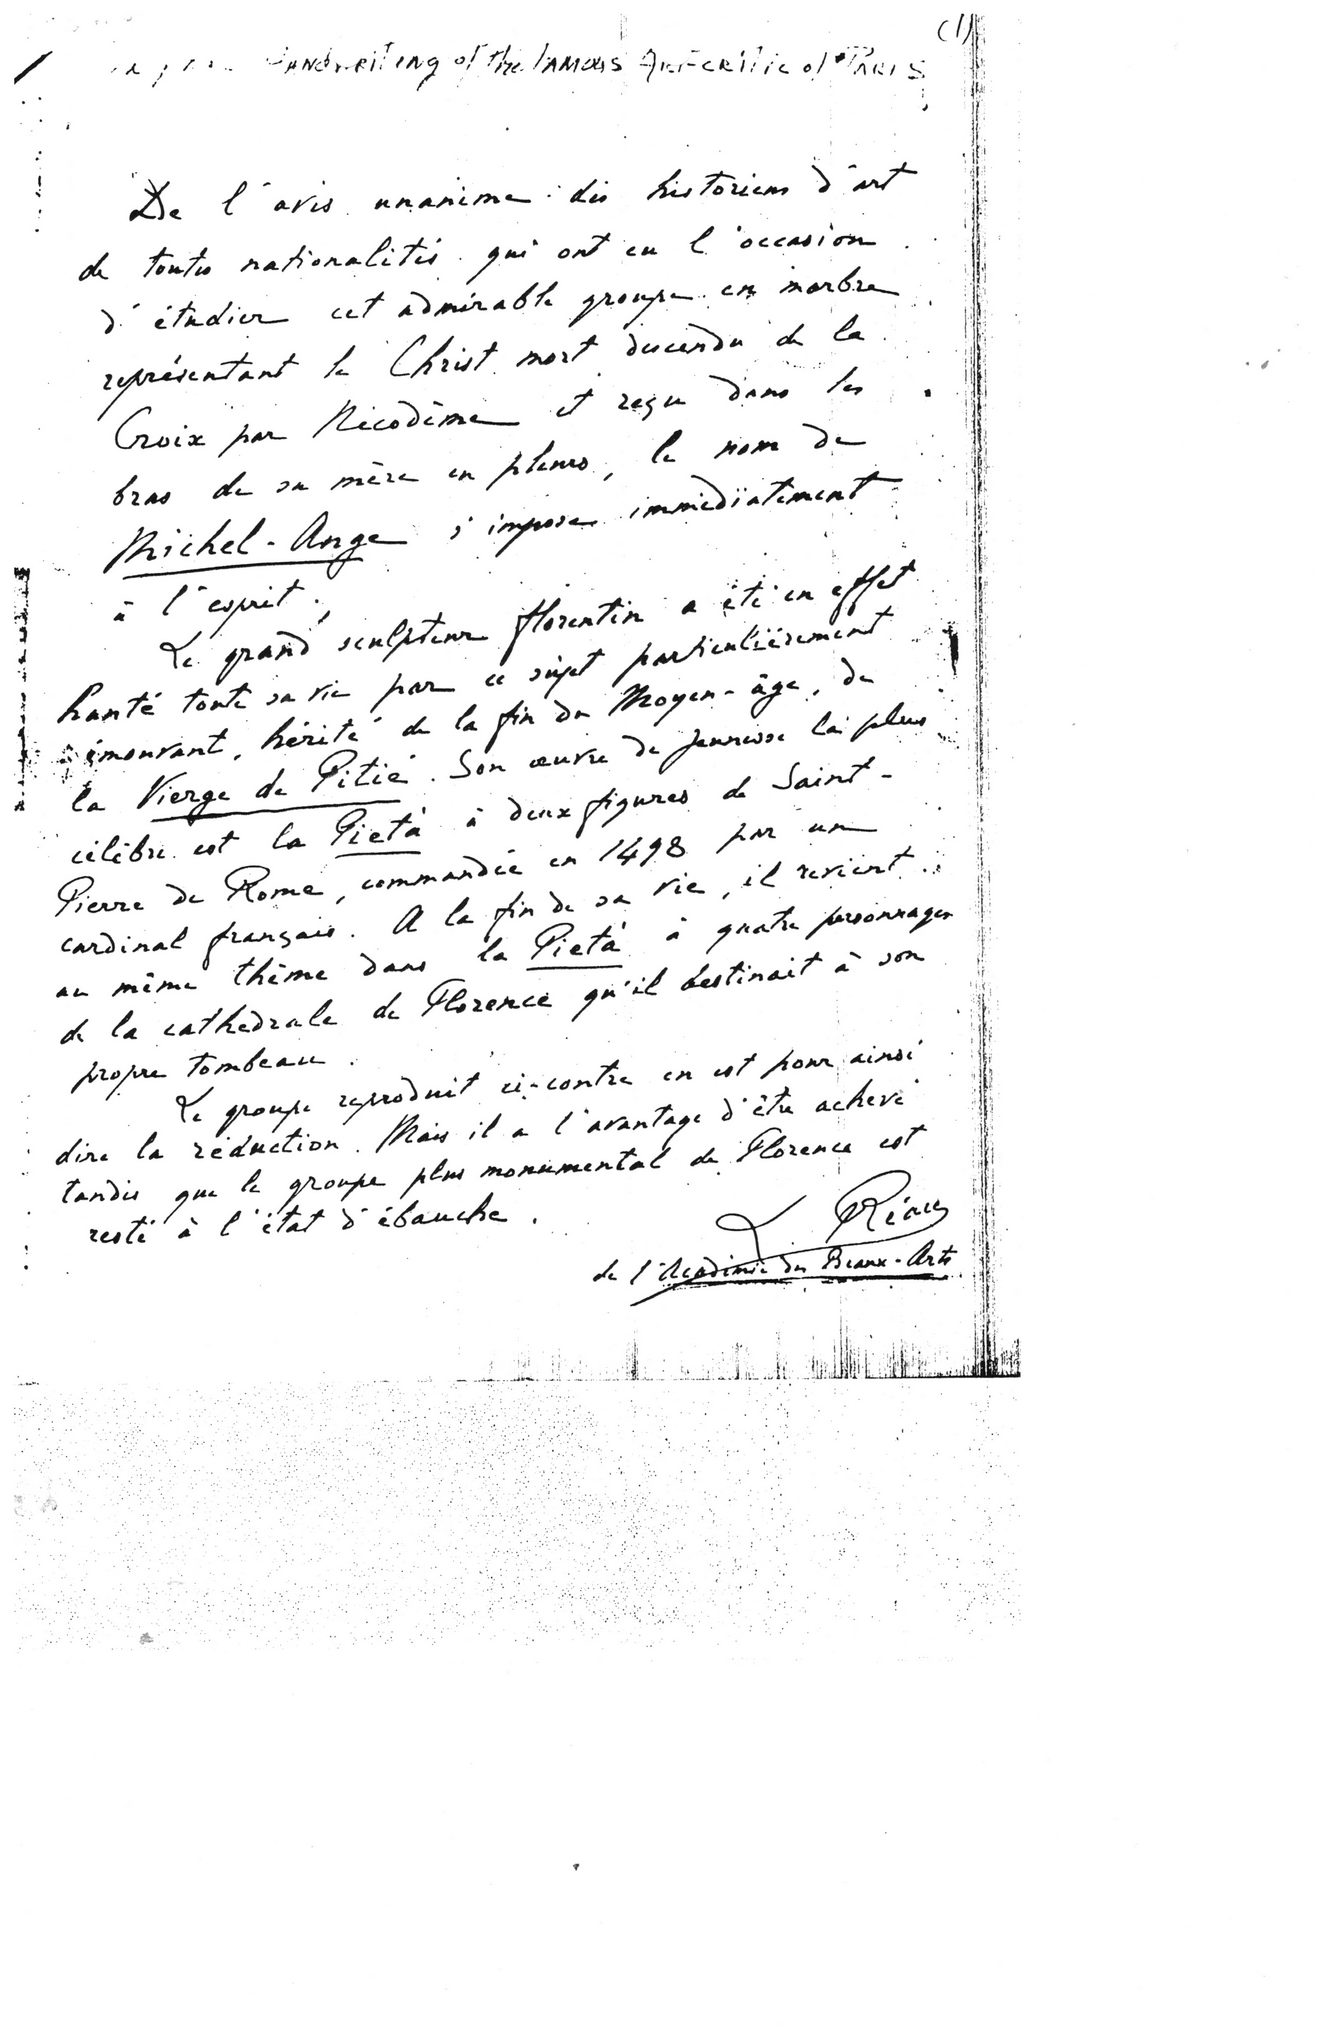 (1)
Handwriting of the famous Art-critic of Paris
De l'avis unanime des historiens d'art
de toutes nationalités qui ont eu l'occasion
d'étudier cet admirable groupe en marbre
représentant le Christ mort descendu de la
Croix par Nicodème et reçu dans les
bras de sa mère en pleurs, le nom de
Michel-Ange s'impose immédiatement
à l'esprit.
Le grand sculpteur florentin a été en effet
hanté toute sa vie par ce sujet particulièrement
émouvant, hérité de la fin du Moyen-âge, de
la Vierge de Pitié. Son œuvre de jeunesse la plus
célèbre est la Pietà à deux figures de Saint-
Pierre de Rome, commandée en 1498 par un
cardinal français. A la fin de sa vie, il revient
au même thème dans la Pietà à quatre personnages
de la cathédrale de Florence qu'il destinait à son
propre tombeau.
Le groupe reproduit ci-contre en est pour ainsi
dire la réduction. Mais il a l'avantage d'être achevé
tandis que le groupe plus monumental de Florence est
resté à l'état d'ébauche.
L Réau
de l'Académie des Beaux-Arts